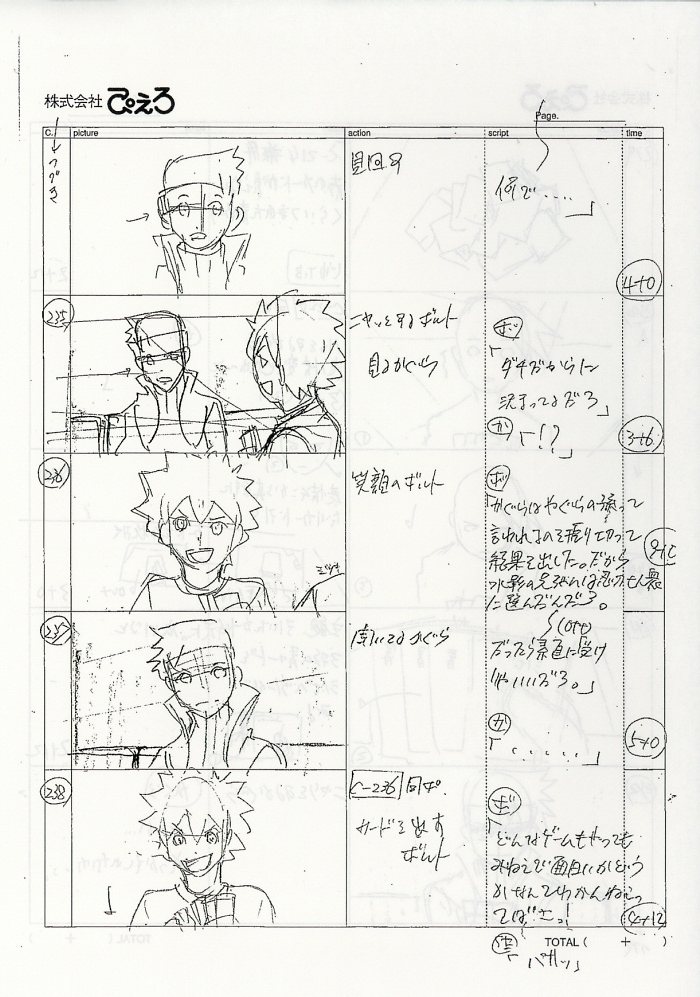 株式会社 ぴえろ
Page.
C. picture action script time
↓つづき
見回す
何で‥‥
」
4+0
235
ニヤッとするボルト
見るかぐら
ボ
「ダチだからに
決まってるだろ」
か
「!?」
3+6
236
笑顔のボルト
ボ
「かぐらはやぐらの孫って
言われるのを振り切って
結果を出した。だから
水影の
に選んだんだろ。
(OFF)
だったら素直に受け
りゃいいだろ。」
237
聞いてるかぐら
か
「‥‥‥」
5+0
238
C-236 同ポ
カードを出す
ボルト
ボ
「どんなゲームもやっても
みねえで面白いかどう
かなんてわかんねえっ
てばさっ!
4+12
TOTAL ( + )